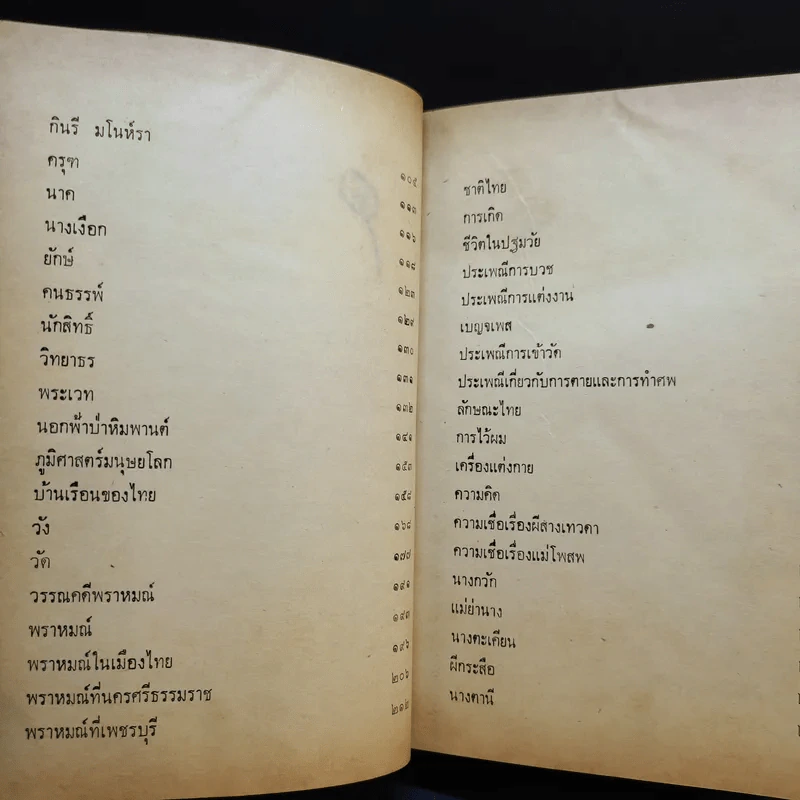 กินรี มโนห์รา ๑๐๕
ครุฑ ๑๑๓
นาค ๑๑๖
นางเงือก ๑๑๘
ยักษ์ ๑๒๓
คนธรรพ์ ๑๒๙
นักสิทธิ์ ๑๓๐
วิทยาธร ๑๓๑
พระเวท ๑๓๒
นอกฟ้าป่าหิมพานต์ ๑๔๑
ภูมิศาสตร์มนุษยโลก ๑๕๓
บ้านเรือนของไทย ๑๕๘
วัง ๑๖๘
วัด ๑๗๗
วรรณคดีพราหมณ์ ๑๙๑
พราหมณ์ ๑๙๓
พราหมณ์ในเมืองไทย ๑๙๖
พราหมณ์ที่นครศรีธรรมราช ๒๐๖
พราหมณ์ที่เพชรบุรี ๒๑๒
ชาติไทย
การเกิด
ชีวิตในปฐมวัย
ประเพณีการบวช
ประเพณีการแต่งงาน
เบญจเพส
ประเพณีการเข้าวัด
ประเพณีเกี่ยวกับการตายและการทำศพ
ลักษณะไทย
การไว้ผม
เครื่องแต่งกาย
ความคิด
ความเชื่อเรื่องผีสางเทวดา
ความเชื่อเรื่องแม่โพสพ
นางกวัก
แม่ย่านาง
นางตะเคียน
ผีกระสือ
นางตานี